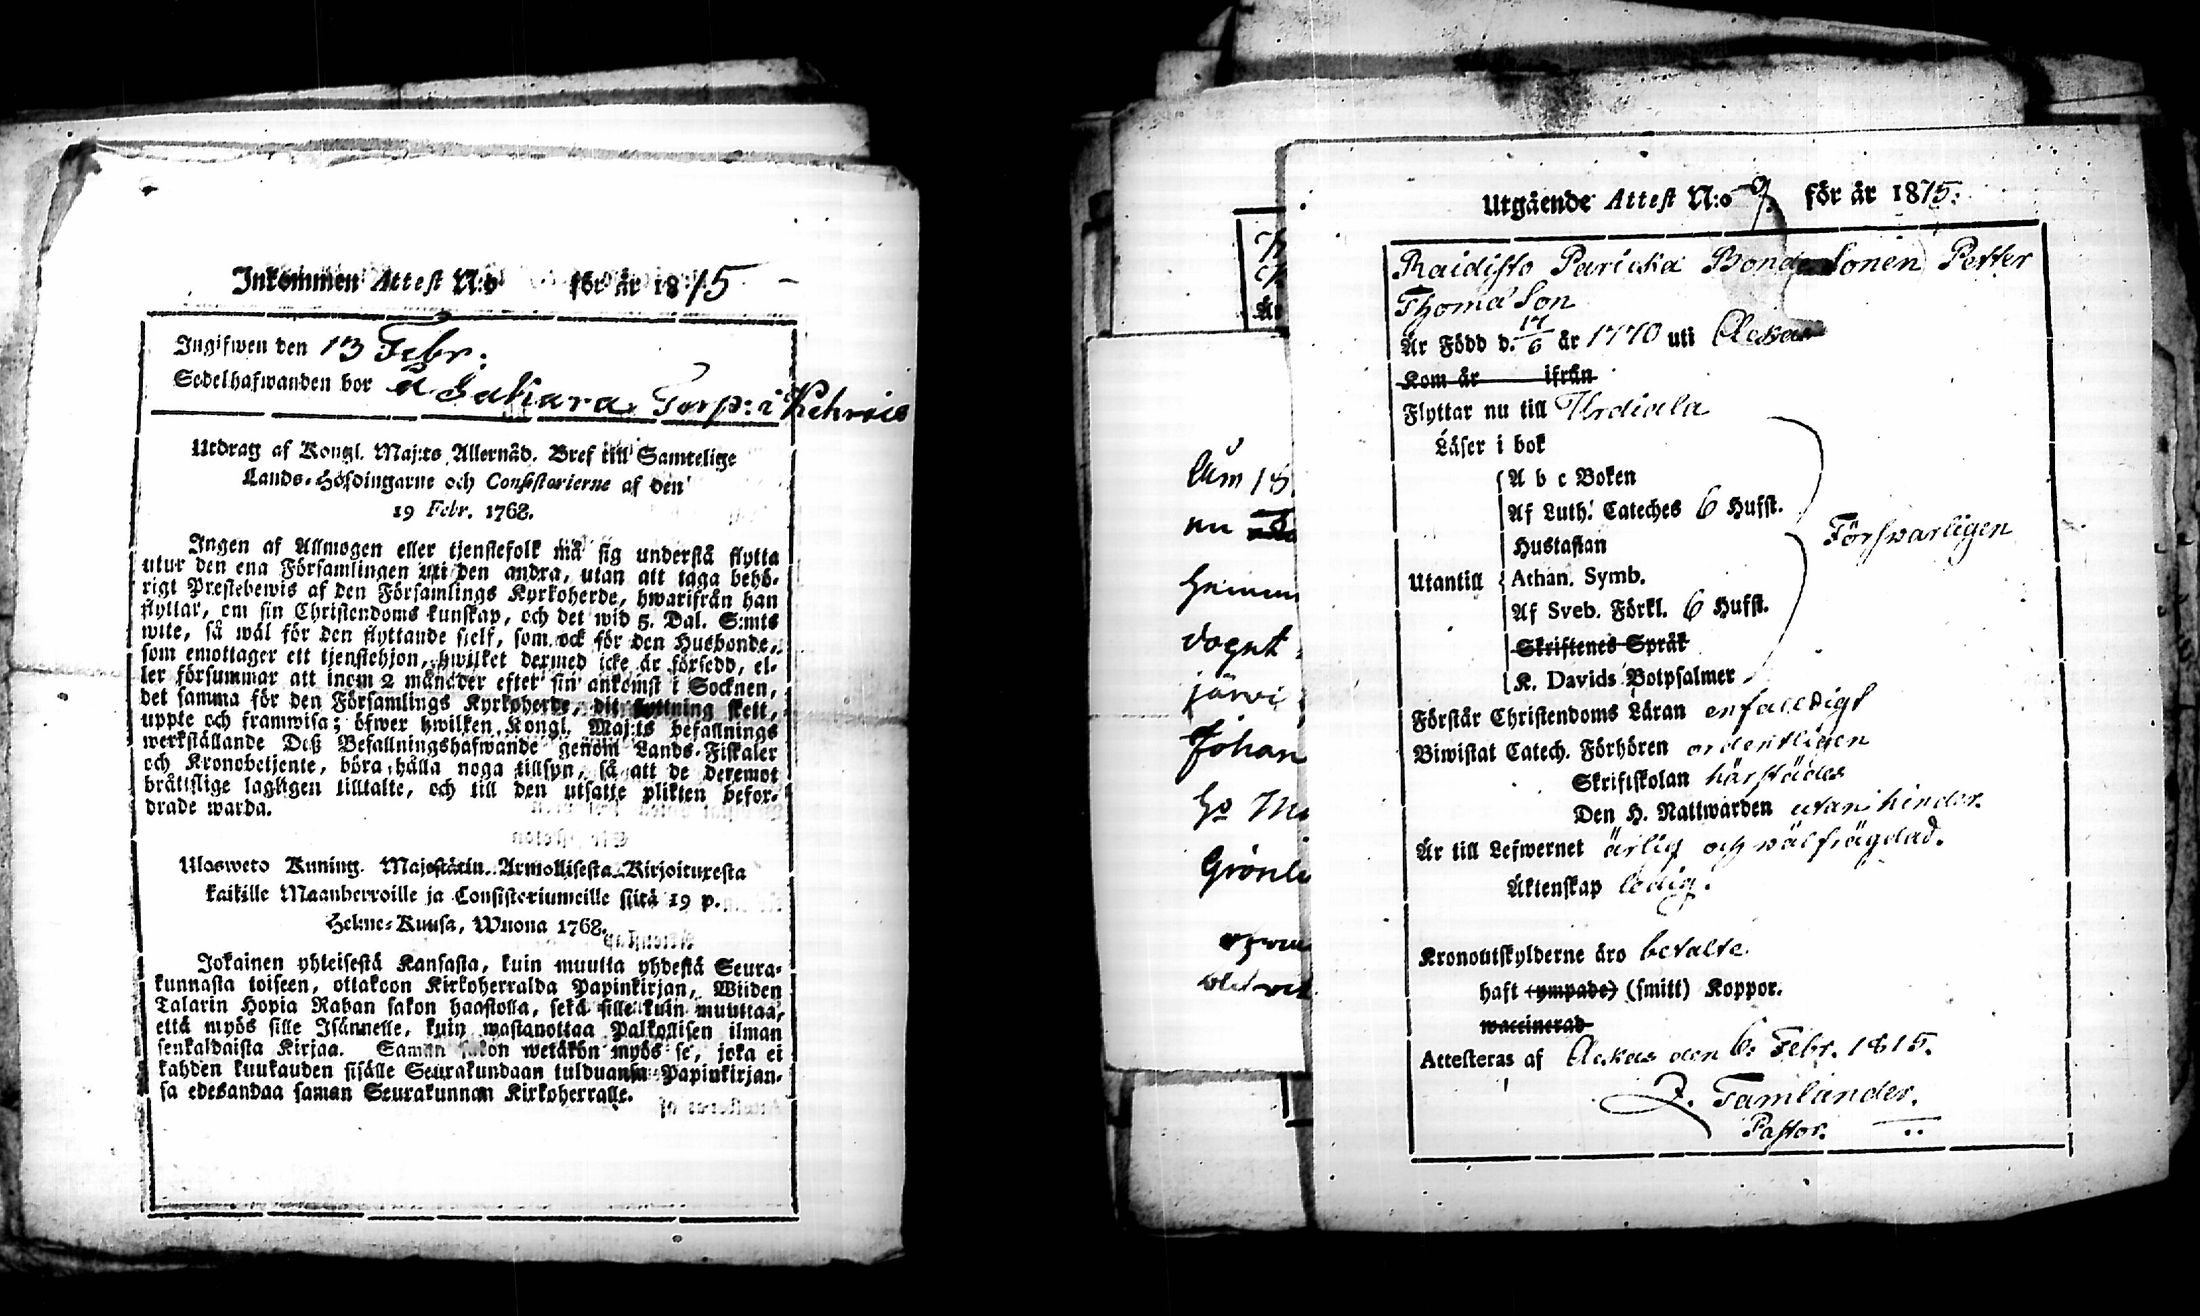 Inkommen Attest N:o för år 1815
Ingifwen den 13 Febr.
Sedelhafwanden bor å Sakara Torp: i Kehrois
Utdrag af Kongl. Maj:ts Allernåd. Bref till Samtelige
Lands-Höfdingarne och Consistorierne af den
19 Febr. 1768.
Ingen af Allmogen eller tjenstefolk må sig understå flytta
utur den ena Församlingen uti den andra, utan att taga behö-
rigt Prestebewis af den Församlings Kyrkoherde, hwarifrån han
flyttar, om sin Christendoms kunskap, och det wid 5. Dal. S:mts
wite, så wäl för den flyttande sjelf, som ock för den Husbonde,
som emottager ett tjenstehjon, hwilket dermed icke är försedd, el-
ler försummar att inom 2 månader efter sin ankomst i Socknen,
det samma för den Församlings Kyrkoherde, dit flyttning skett,
uppte och framwisa; öfwer hwilken Kongl. Maj:ts befallnings
werkställande Deß Befallningshafwande genom Lands-Fiskaler
och Kronobetjente, böra hålla noga tillsyn, så att de deremot
bråttslige lagligen tilltalte, och till den utsatte plikten befor-
drade warda.
Ulosweto Kuning. Majestätin Armollisesta Kirjoituxesta
kaikille Maanherroille ja Consistoriumeille siitä 19 p.
Helme-Kuusa, Wuona 1768.
Jokainen yhteisestä Kansasta, kuin muutta yhdestä Seura-
kunnasta toiseen, ottakoon Kirkoherralda Papinkirjan, Wiiden
Talarin Hopia Rahan sakon haastolla, sekä sille kuin muuttaa,
että myös sille Isännelle, kuin wastanottaa Palkollisen ilman
senkaldaista Kirjaa. Saman sakon wetäkön myös se, joka ei
kahden kuukauden sisälle Seurakundaan tulduansa Papinkirjan-
sa edesandaa saman Seurakunnan Kirkoherralle.
18
nu
vognt
järvi
Johan
Utgående Attest N:o 9. för år 1815.
Raidisto Paricka Bonde Sonen Petter
Thoma Son
Är Född d. 17/6 år 1770 uti Ackas
Kom år ifrån
Flyttar nu till Urdiala
Läser i bok
A b c Boken
Af Luth. Cateches 6 Hufst.
Hustaflan
Försvarligen
Utantill Athan. Symb.
Af Sveb. Förkl. 6 Hufst.
Skriftenes Språk
K. Davids Botpsalmer
Förstår Christendoms Läran enfaldigt
Biwistat Catech. Förhören ordentligen
Skriftskolan härstädes
Den H. Nattwarden utan hinder.
Är till Lefwernet ärlig och wälfrägdad.
Äktenskap ledig.
Kronoutskylderne äro betalte
haft (ympade) (smitt) Koppor.
waccinerad
Attesteras af Ackas den 6. Febr. 1815.
Z. Tamlander.
Pastor.